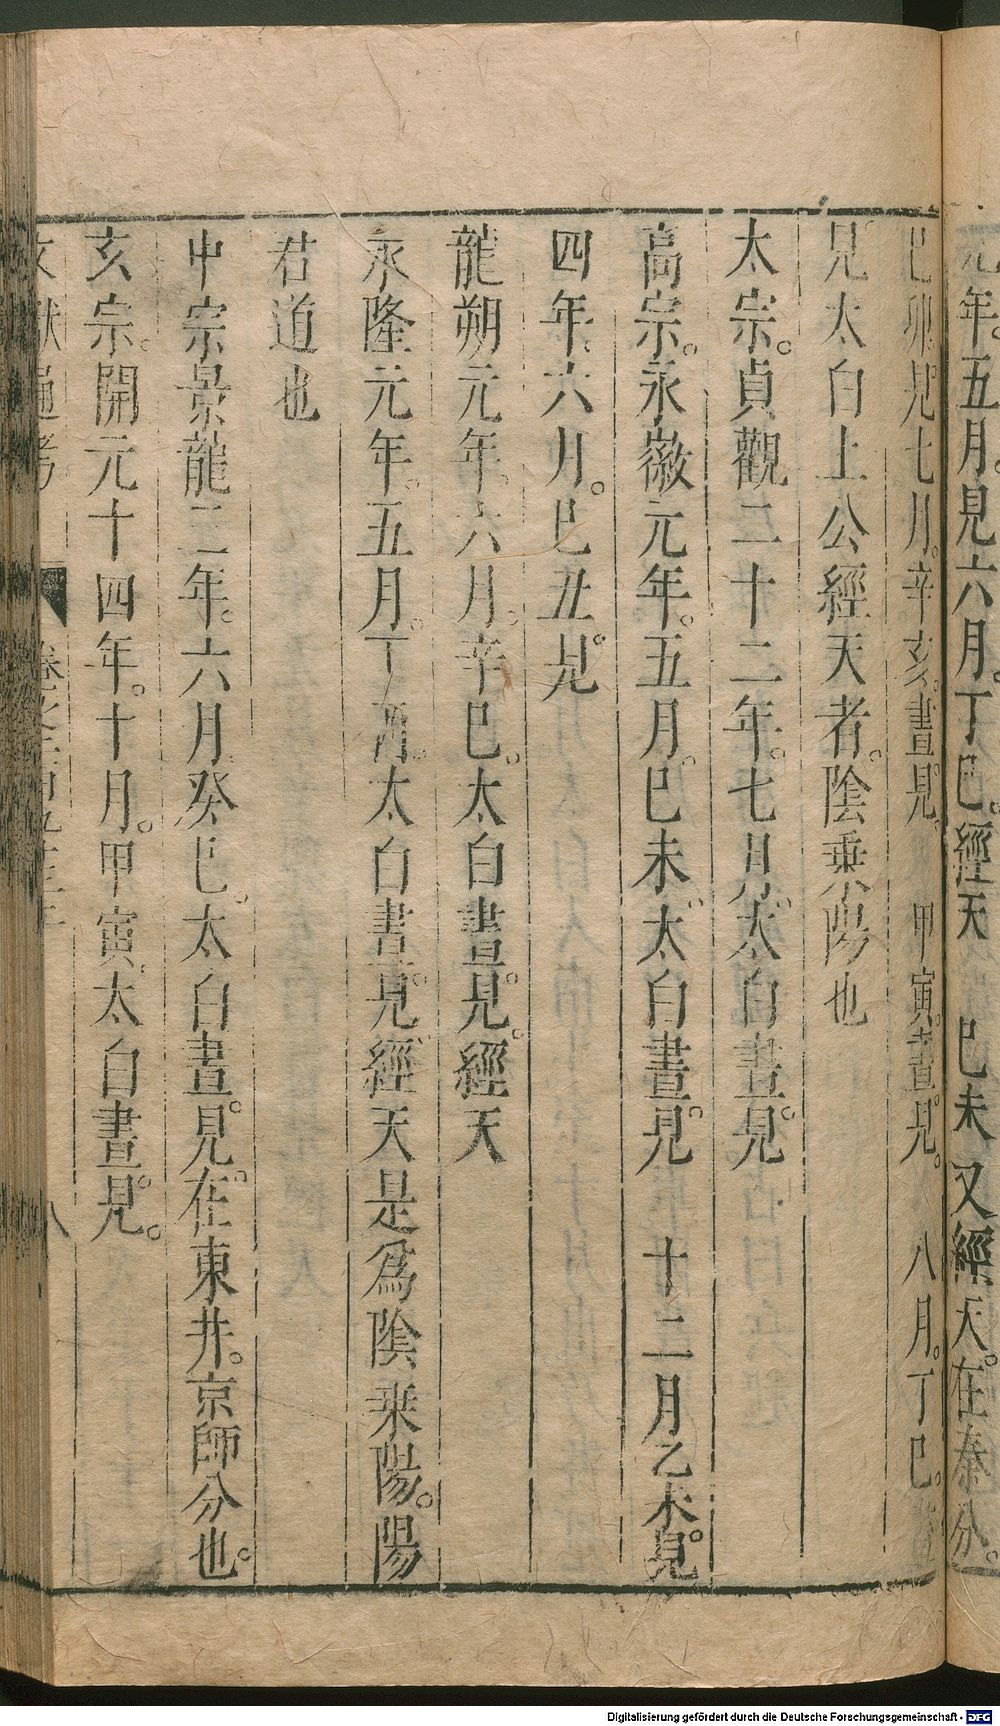 元年。五月。見六月。丁巳。經天 巳未又經天。在秦分。
巳卯見七月。辛亥。晝見。 甲寅。晝見。 八月。丁巳。晝
見太白上公經天者。陰乗陽也
太宗。貞觀二十二年。七月。太白晝見。
高宗。永徽元年。五月。巳未。太白晝見。 十二月乙未。見
四年。六月。巳丑。見
龍朔元年。六月。辛巳。太白晝見。經天
永隆元年。五月。丁酉。太白晝見。經天是爲陰乗陽。陽
君道也
中宗景龍三年。六月癸巳。太白晝見。在東井。京師分也。
玄宗。開元十四年。十月。甲寅。太白晝見。
文獻通考 卷之二百九十三 八
Digitalisierung gefördert durch die Deutsche Forschungsgemeinschaft - DFG